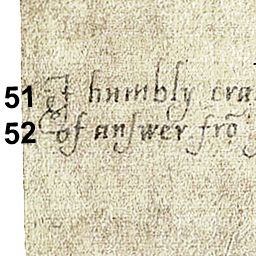 51 I humbly cra
52 of anſwer frõ